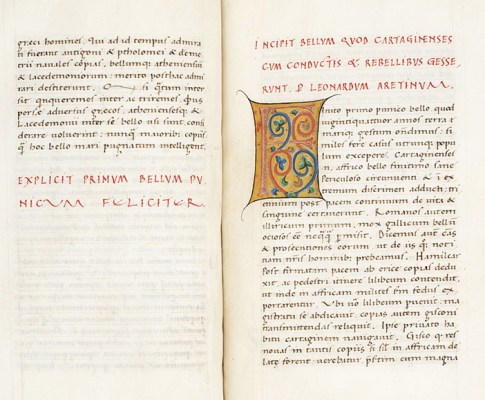 græci homines. Qui ad id tempus admira
ti fuerant antigoni & ptholomei & deme
trii navales copias, bellumque atheniensium
& lacedemoniorum: merito posthac admi
rari desierunt.
se adversus græcos, atheniensesque &
Lacedemonii inter se bello usi sunt, consi
derare voluerint: nunquam maioribus copiis
quam hoc bello mari pugnatum intelligent.
EXPLICIT PRIMUM BELLUM PU
NICUM FELICITER.
INCIPIT BELLUM QUOD CARTAGINENSES
CUM CONDUCTIS & REBELLIBUS GESSE
RUNT. P LEONARDUM ARETINUM.
FInito primo punico bello quod
viginti quattuor annos terra et
mari gestum ostendimus: si
miles fere casus utrunque popu
lum excepere. Cartaginenses
in affrico bello finitimo sane
periculoso circumventi & in ex
tremum discrimen adducti: tri
ennium post pacem continuum de vita &
sanguine certaverunt. Romanos autem
illiricum primum, mox gallicum bellum
ociosos esse permisit. Dicemus autem
& prosecutiones eorum, ut de iis quoque noti
tiam nostris hominibus prebeamus. Hamilcar
post firmatam pacem ab erice copias dedux
it, ac pedestri itinere lilibeum contendit,
ut inde in affricam milites transportarentur
portarentur. Ubi lilibeum pervenit: ma
gistratu se abdicavit, copias autem gisconi
transmittendas reliquit. Ipse privato ha
bitu cartaginem navigavit. Gisco
novas in tantis copiis si simul in affricam de
late forent verebatur, cum magna